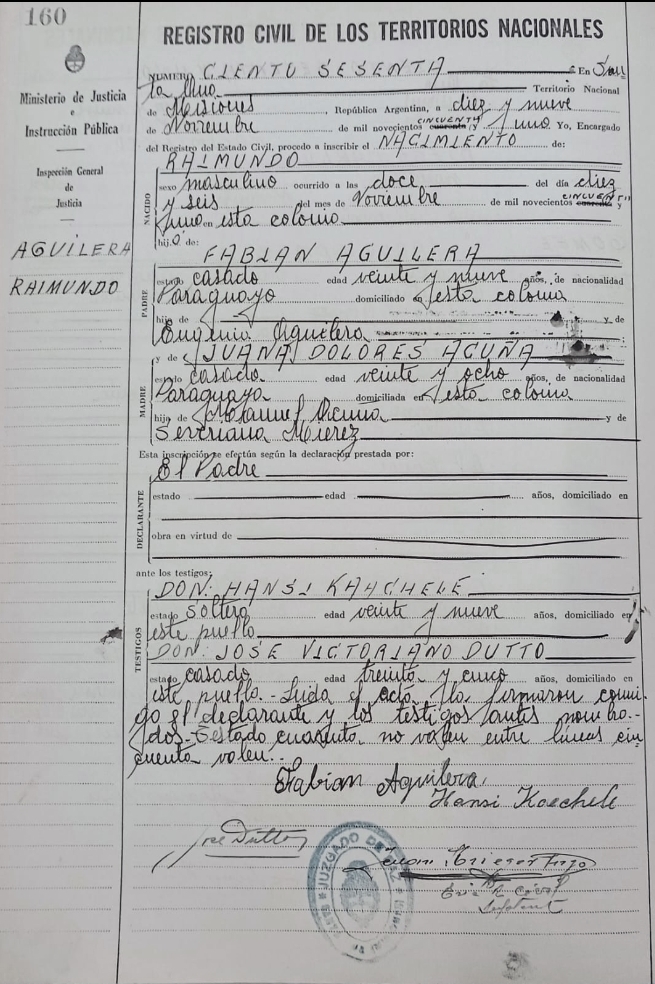 160
REGISTRO CIVIL DE LOS TERRITORIOS NACIONALES
Ministerio de Justicia
e
Instrucción Pública
Inspección General
de
Justicia
AGUILERA
RAIMUNDO
NUMERO CIENTO SESENTA En San
ta Ana Territorio Nacional
de Misiones, República Argentina, a diez y nueve
de Noviembre de mil novecientos cuarenta CINCUENTA y uno Yo, Encargado
del Registro del Estado Civil, procedo a inscribir el NACIMIENTO de:
NACIDO
RAIMUNDO
sexo masculino ocurrido a las doce del día diez
y seis del mes de Noviembre de mil novecientos cuarenta CINCUENTA y
uno en esta colonia
hijo de:
PADRE
FABIAN AGUILERA
estado casado edad veinte y nueve años, de nacionalidad
Paraguayo domiciliado en esta colonia
hijo de y de
Eugenia Aguilera
MADRE
y de JUANA DOLORES ACUÑA
estado casada edad veinte y ocho años, de nacionalidad
Paraguaya domiciliada en esta colonia
hija de Manuel Acuña y de
Severiana Mierez
Esta inscripción se efectúa según la declaración prestada por:
DECLARANTE
El Padre
estado edad años, domiciliado en
obra en virtud de
ante los testigos:
TESTIGOS
DON: HANSI KAHCHELE
estado soltero edad veinte y nueve años, domiciliado en
este pueblo
DON: JOSE VICTORIANO DUTTO
estado casado edad treinta y cinco años, domiciliado en
este pueblo.- Leída el acta la firmaron conmi
go el declarante y los testigos antes nombra-
dos- Testado cuarenta no valen entre líneas cin
cuenta valen..
Fabian Aguilera
Hansi Kaechele
Jose Dutto
JUZGADO DE PAZ